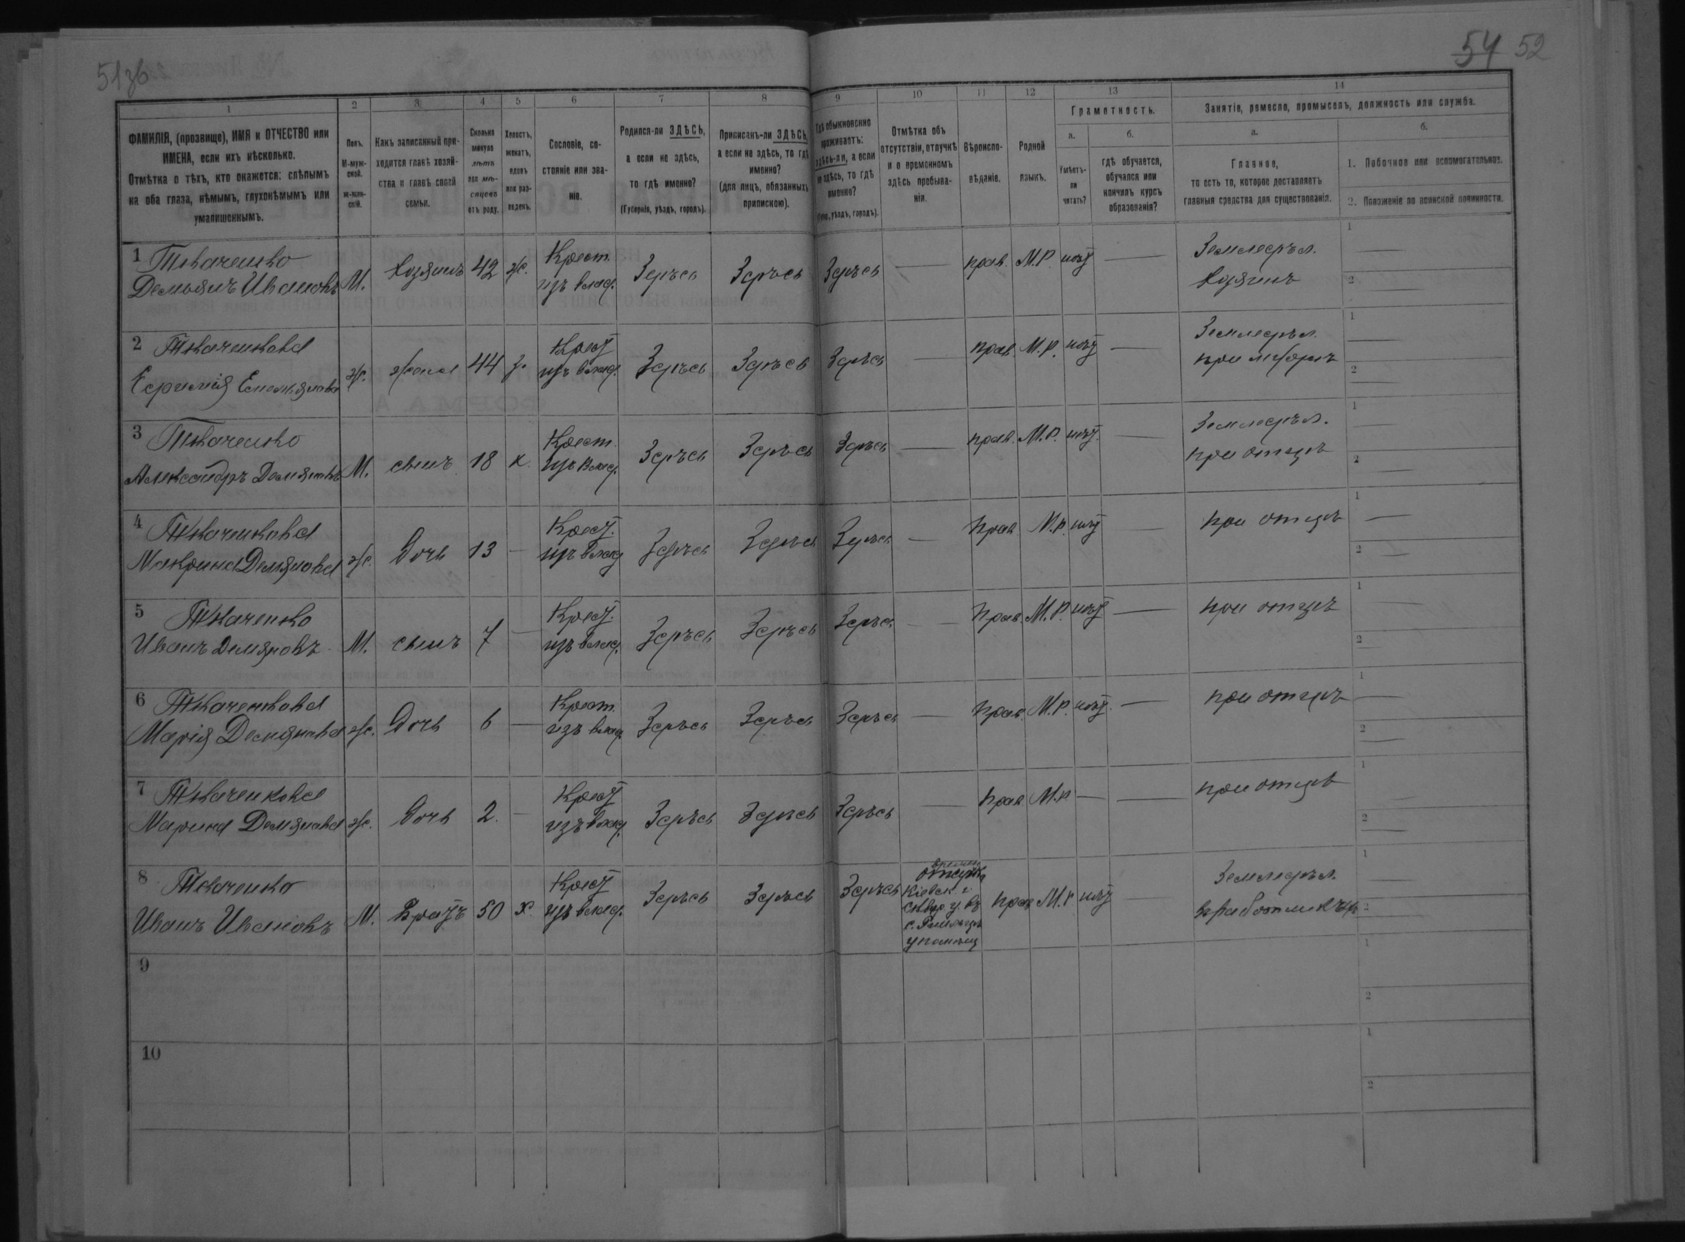 51зв
54 52
1 2 3 4 5 6 7 8 9 10 11 12 13 14
ФАМИЛІЯ, (прозвище), ИМЯ и ОТЧЕСТВО или
ИМЕНА, если ихъ нѣсколько.
Отмѣтка о тѣхъ, кто окажется: слѣпымъ
на оба глаза, нѣмымъ, глухонѣмымъ или
умалишеннымъ.
Полъ.
М-муж-
ской.
ж-жен-
скій.
Какъ записанный при-
ходится главѣ хозяй-
ства и главѣ своей
семьи.
Сколько
минуло
лѣтъ
или мѣ-
сяцевъ
отъ роду.
Холостъ,
женатъ,
вдовъ
или раз-
веденъ.
Сословіе, со-
стояніе или зва-
ніе.
Родился-ли ЗДѢСЬ,
а если не здѣсь,
то гдѣ именно?
(Губернія, уѣздъ, городъ).
Приписанъ-ли ЗДѢСЬ,
а если не здѣсь, то гдѣ
именно?
(для лицъ, обязанныхъ
припискою).
Гдѣ обыкновенно
проживаетъ:
здѣсь-ли, а если
не здѣсь, то гдѣ
именно?
(Губ., уѣздъ, городъ).
Отмѣтка объ
отсутствіи, отлучкѣ
и о временномъ
здѣсь пребыва-
ніи.
Вѣроиспо-
вѣданіе.
Родной
языкъ.
Грамотность.
а.
Умѣетъ-
ли
читать?
б.
гдѣ обучается,
обучался или
кончилъ курсъ
образованія?
Занятіе, ремесло, промыселъ, должность или служба.
а.
Главное,
то есть то, которое доставляетъ
главныя средства для существованія.
б.
1. Побочное или вспомогательное.
2. Положеніе по воинской повинности.
1 Ткаченко
Демьянъ Ивановъ М. хозяинъ 42 ж. Крест. изъ влад. Здѣсь Здѣсь Здѣсь — прав. М.Р. нѣтъ — Земледѣл. хозяинъ 1 — 2 —
2 Ткаченкова
Емельянова ж. жена 44 з. Крест изъ влад. Здѣсь Здѣсь Здѣсь — прав. М.Р. нѣтъ — Земледѣл. при 1 — 2 —
3 Ткаченко
Александръ Демяновъ М. сынъ 18 х. Крест. изъ влад. Здѣсь Здѣсь Здѣсь — прав. М.Р. нѣтъ. — Земледѣл. при отцѣ 1 — 2 —
4 Ткаченкова
Макрина Демянова ж. Дочь 13 — Крест. изъ влад Здѣсь Здѣсь Здѣсь — прав. М.Р. нѣтъ — при отцѣ 1 — 2 —
5 Ткаченко
Иванъ Демяновъ М. сынъ 7 — Крест. изъ влад. Здѣсь Здѣсь Здѣсь — Прав. М.Р. нѣтъ — при отцѣ 1 — 2 —
6 Ткаченкова
Марія Демянова ж. Дочь 6 — Крест. изъ влад. Здѣсь Здѣсь Здѣсь — Прав. М.Р. нѣтъ. — при отцѣ 1 — 2 —
7 Ткаченкова
Марина Демянова ж. Дочь 2. — Крест изъ влад. Здѣсь Здѣсь Здѣсь — Прав М.Р — — при отцѣ 1 2 —
8 Ткаченко
Иванъ Ивановъ М. Братъ 50 х. Крест изъ влад. Здѣсь Здѣсь Здѣсь Кіевск г прав М.Р нѣтъ — Земледѣл. 1 2
9 1 2
10 1 2